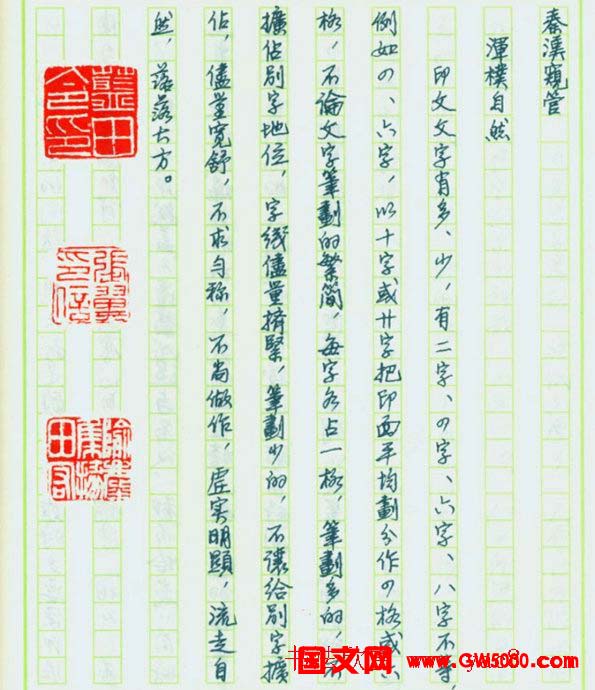 秦溪窺管
渾樸自然
印文文字有多、少，有二字、四字、六字、八字不等
例如四、六字，以十字或廿字把印面平均劃分作四格或六
格，不論文字筆劃的繁简，每字各占一格，筆劃多的，不
擴佔別字地位，字线儘量擠緊，筆劃少的，不讓給別字擴
佔，儘量寬舒，不求匀称，不尚做作，虚实明顯，流走自
然，落落大方。
张翼
印信
国文网 www.GW5000.com